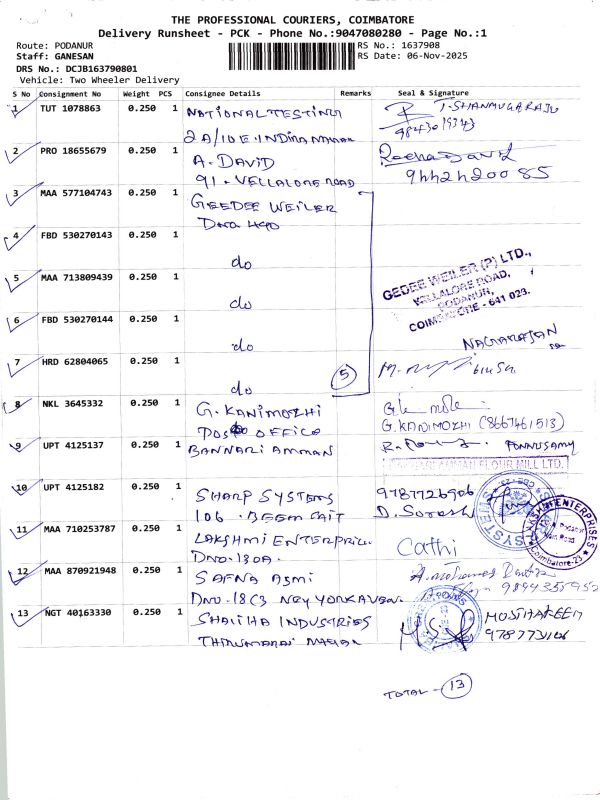 THE PROFESSIONAL COURIERS, COIMBATORE
Delivery Runsheet - PCK - Phone No.:9047080280 - Page No.:1
Route: PODANUR
Staff: GANESAN
DRS No.: DCJB163790801
Vehicle: Two Wheeler Delivery
RS No.: 1637908
RS Date: 06-Nov-2025
S No Consignment No Weight PCS Consignee Details Remarks Seal & Signature
1 TUT 1078863 0.250 1 NATIONAL TESTING T. SHANMUGARAJU
2A/10 E. INDIRA NAGAR
2 PRO 18655679 0.250 1 A. DAVID
91. VELLALORE ROAD
3 MAA 577104743 0.250 1 GEEDEE WEILER
DNO 490
4 FBD 530270143 0.250 1 do
5 MAA 713809439 0.250 1 do
GEDEE WEILER (P) LTD.,
VELLALORE ROAD,
PODANUR,
COIMBATORE - 641 023.
6 FBD 530270144 0.250 1 do
NAGARAJAN
7 HRD 62804065 0.250 1 do 5
8 NKL 3645332 0.250 1 G. KANIMOZHI
POST OFFICE G. KANIMOZHI (8667461513)
9 UPT 4125137 0.250 1 BANNARI AMMAN PONNUSAMY
FLOUR MILL LTD.
10 UPT 4125182 0.250 1 SHARP SYSTEMS 9787726906
106. BEEM D. Suresh
11 MAA 710253787 0.250 1 LAKSHMI ENTERPRISE
DNO. 130A. Cathi
ENTERPRISES
Coimbatore-23
12 MAA 870921948 0.250 1 SAFNA
DNO. 18
13 NGT 40163330 0.250 1 INDUSTRIES
NAGAR
TOTAL - 13